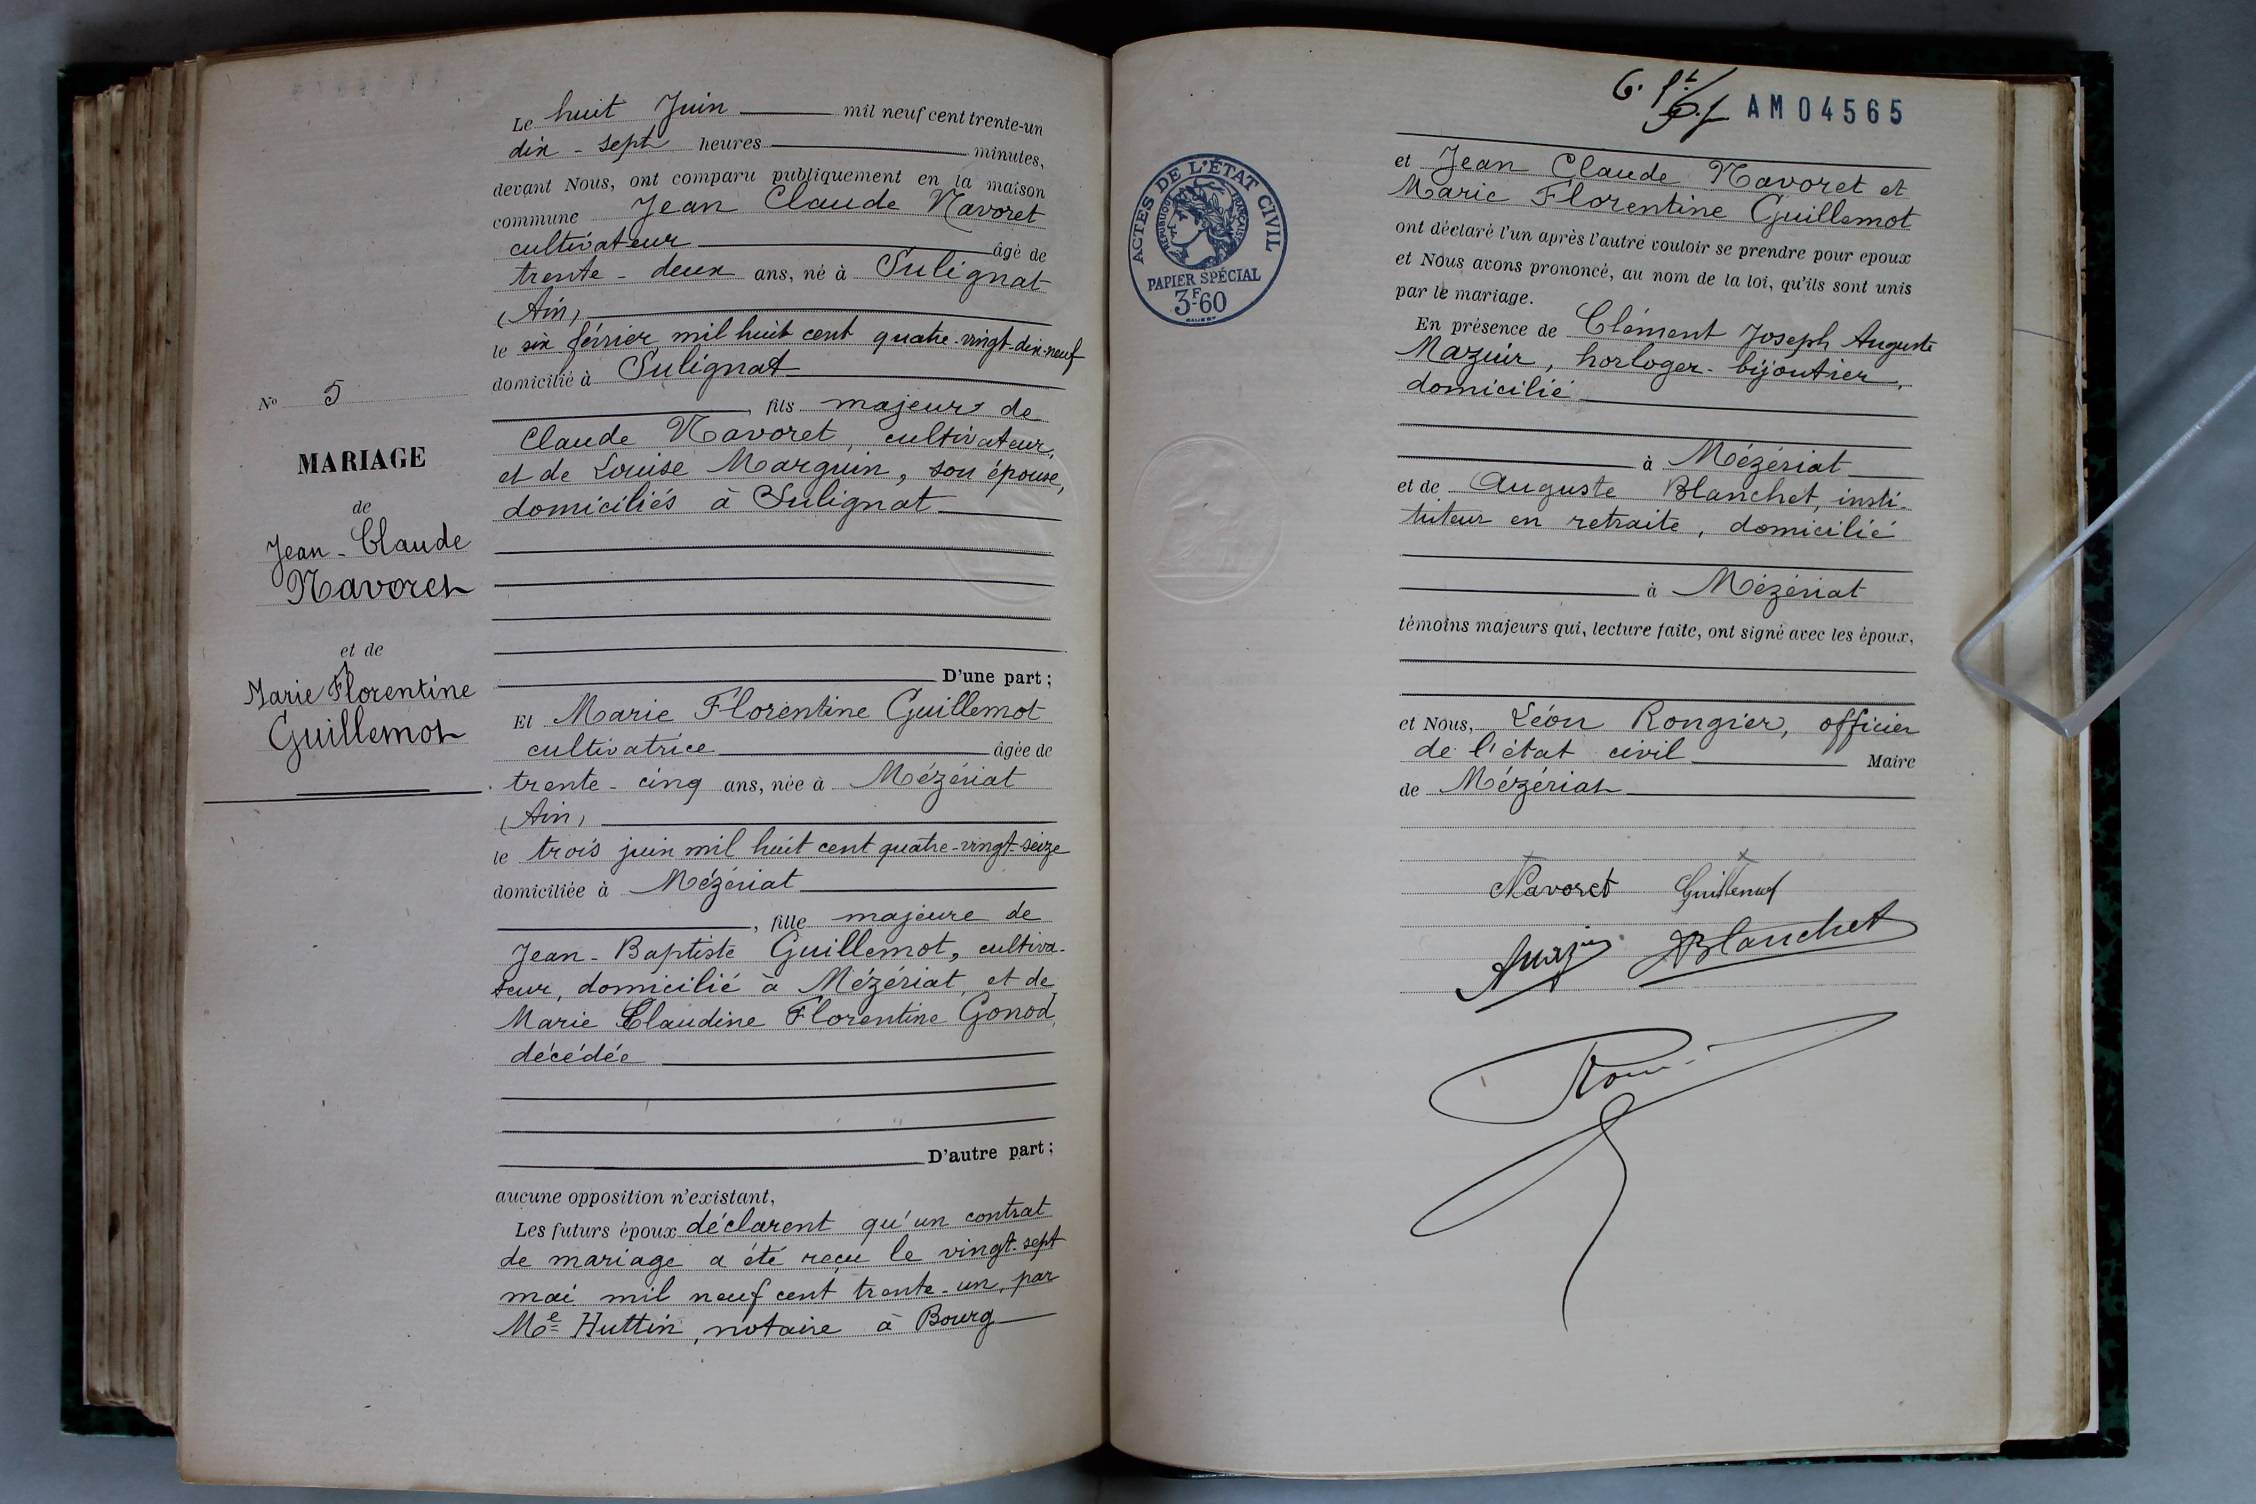 N° 5
MARIAGE
de
Jean-Claude
Navoret
et de
Marie Florentine
Guillemot
Le huit Juin mil neuf cent trente-un
dix-sept heures minutes,
devant Nous, ont comparu publiquement en la maison
commune Jean Claude Navoret
cultivateur âgé de
trente-deux ans, né à Sulignat
(Ain)
le six février mil huit cent quatre-vingt-dix-neuf
domicilié à Sulignat
, fils majeur de
Claude Navoret, cultivateur,
et de Louise Marguin, son épouse,
domiciliés à Sulignat
D'une part ;
Et Marie Florentine Guillemot
cultivatrice âgée de
trente-cinq ans, née à Mézériat
(Ain)
le trois juin mil huit cent quatre-vingt-seize
domiciliée à Mézériat
, fille majeure de
Jean-Baptiste Guillemot, cultiva-
teur, domicilié à Mézériat, et de
Marie Claudine Florentine Gonod,
décédée
D'autre part ;
aucune opposition n'existant,
Les futurs époux déclarent qu'un contrat
de mariage a été reçu le vingt-sept
mai mil neuf cent trente-un, par
Me Huttin, notaire à Bourg
AM04565
ACTES DE L'ÉTAT CIVIL
RÉPUBLIQUE FRANÇAISE
PAPIER SPÉCIAL
3F60
et Jean Claude Navoret et
Marie Florentine Guillemot
ont déclaré l'un après l'autre vouloir se prendre pour epoux
et Nous avons prononcé, au nom de la loi, qu'ils sont unis
par le mariage.
En présence de Clément Joseph Auguste
Mazuir, horloger-bijoutier,
domicilié
à Mézériat
et de Auguste Blanchet, insti-
tuteur en retraite, domicilié
à Mézériat
témoins majeurs qui, lecture faite, ont signé avec les époux,
et Nous, Léon Rongier, officier
de l'état civil Maire
de Mézériat
Navoret Guillemot
Blanchet